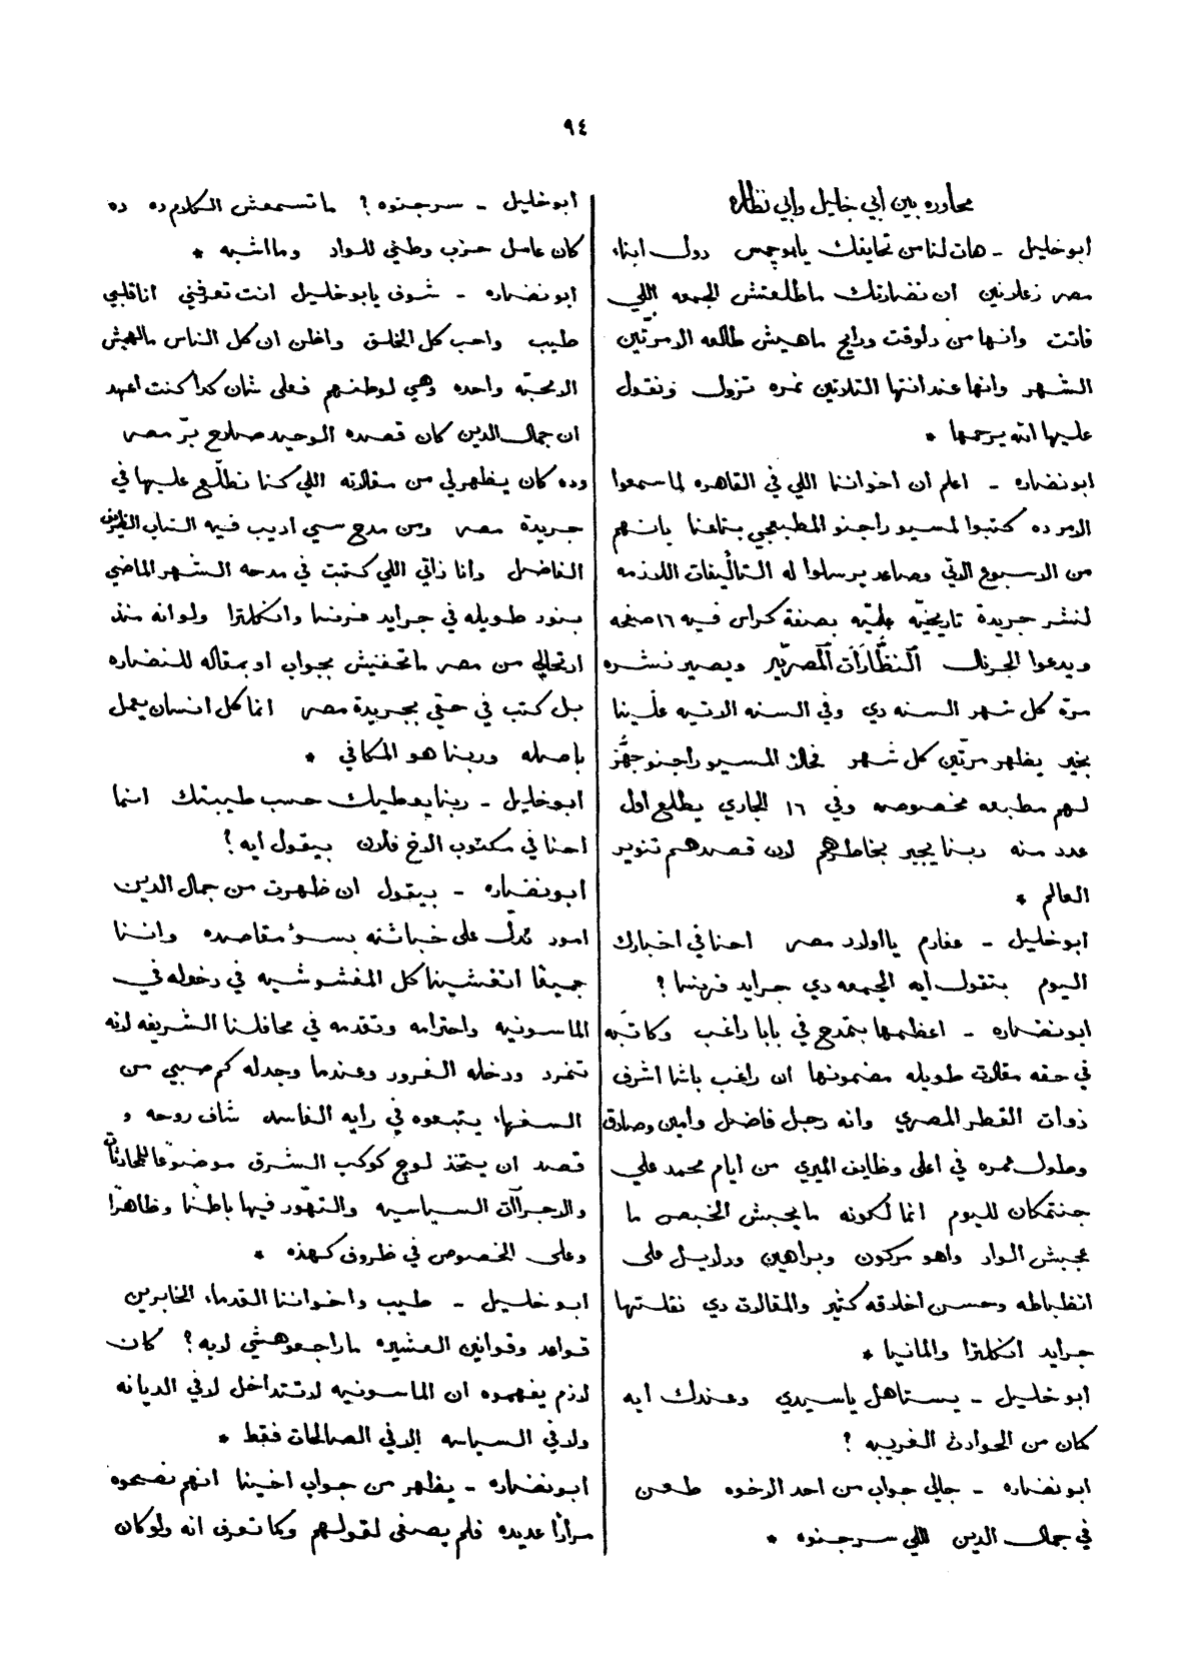 ٩٤
محاوره بين أبي خليل وابي نظاره
ابوخليل - هات لنا من تحايفك يابوجمس دول ابناء
مصر زعلانين ان نضارتك ماطلعتش الجمعه اللي
فاتت وانها من دلوقت ورايح ماهيش طالعه الا مرتين
الشهر وانها عند انتها التلاتين نمره تزول ونقول
عليها الله يرحمها *
ابونضاره - اعلم ان اخواننا اللي في القاهره لما سمعوا
الامر ده كتبوا لمسيو راجنو المطبعجي بتاعنا بانهم
من الاسبوع الاتي وصاعد يرسلوا له التأليفات اللازمه
لنشر جريدة تاريخيّه علميّه بصفة كراس فيه ١٦ صفحه
ويدعوا الجرنال النظّارات المصريّه ويصير نشره
مرّة كل شهر السنه دي وفي السنه الاتيه علينا
بخير يظهر مرتّين كل شهر فحالاً المسيو راجنو جهّز
لهم مطبعه مخصوصه وفي ١٦ الجاري يطلع اول
عدد منه ربنا يجبر بخاطرهم لان قصدهم تنوير
العالم *
ابوخليل - عفارم يااولاد مصر احنا في اخبارك
اليوم بتقول ايه الجمعه دي جرايد فرنسا ؟
ابونضاره - اعظمها بتمدح في بابا راغب وكاتبه
في حقه مقالات طويله مضمونها ان راغب باشا اشرف
ذوات القطر المصري وانه رجل فاضل وامين وصادق
وطول عمره في اعلى وظايف الميري من ايام محمد علي
جنتمكان لليوم انما لكونه مايحبش الخبص ما
عجبش الواد واهو مركون وبراهين ودلايل على
انظباطه وحسن اخلاقه كتير والمقالات دي نقلتها
جرايد انكلترا والمانيا *
ابوخليل - يستاهل ياسيدي وعندك ايه
كمان من الحوادث الغريبه ؟
ابونضاره - جالي جواب من احد الاخوه طعن
في جمال الدين اللي سرجنوه *
ابوخليل - سرجنوه ؟ ماتسمعش الكلام ده ده
كان عامل حزب وطني للواد وما اشبه *
ابونضاره - شوف يابوخليل انت تعرفني انا قلبي
طيب واحب كل الخلق واظن ان كل الناس مالهمش
الا محبّه واحده وهي لوطنهم فعلى شان كدا كنت اعهد
ان جمال الدين كان قصده الوحيد صلاح برّ مصر
وده كان يظهرلي من مقالاته اللي كنا نطّلع عليها في
جريدة مصر ومن مدح سي اديب فيه الشاب الظريف
الفاضل وانا ذاتي اللي كتبت في مدحه الشهر الماضي
بنود طويله في جرايد فرنسا وانكلترا ولو انه منذ
ارتحالي من مصر ماتحفنيش بجواب او بمقاله للنضاره
بل كتب في حقي بجريدة مصر انما كل انسان يعمل
باصله وربنا هو المكافي *
ابوخليل - ربنا يعطيك حسب طيبتك انما
احنا في مكتوب الاخ فلان بيقول ايه ؟
ابونضاره - بيقول ان ظهرت من جمال الدين
امور تدلّ على خباثته بسوء مقاصده واننا
جميعًا اتغشينا كل المغشوشيه في دخوله في
الماسونيه واحترامه وتقدمه في محافلنا الشريفه لانه
تنمرد ودخله الغرور وعندما وجد له كم صبي من
السفهاء يتبعوه في رايه الفاسد شاف روحه و
قصد ان يتخذ لوج كوكب الشرق موضوعًا للمحادثات
والاجراآت السياسيه والتهوّر فيها باطنًا وظاهرًا
وعلى الخصوص في ظروف كهذه *
ابوخليل - طيب واخواننا القدماء الخابرين
قواعد وقوانين العشيره ماراجعوهشي لايه ؟ كان
لازم يفهموه ان الماسونيه لا تتداخل لا في الديانه
ولا في السياسه الا في الصالحات فقط *
ابونضاره - يظهر من جواب اخينا انهم نصحوه
مرارًا عديده فلم يصغى لقولهم وكما تعرف انه ولو كان